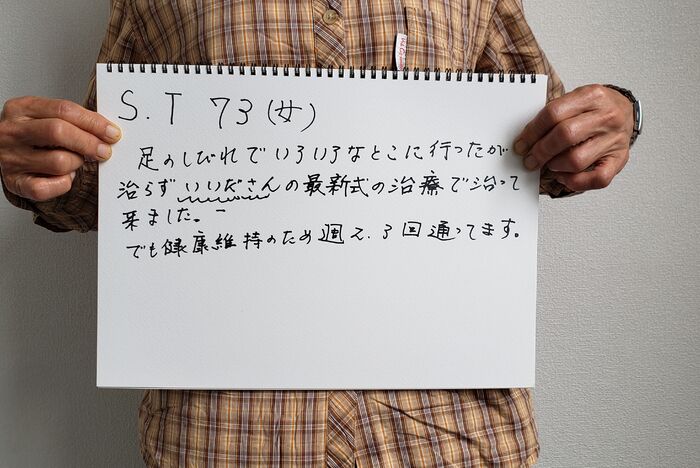 S.T 73(女)
足のしびれでいろいろなとこに行ったが
治らずいいださんの最新式の治療で治って
来ました。
でも健康維持のため週2.3回通ってます。